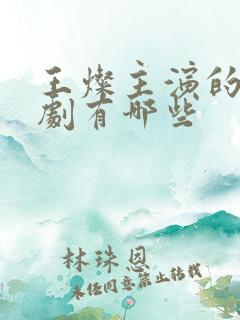 王燦主演的
劇有哪些
林珠恩
未经同意禁止转载